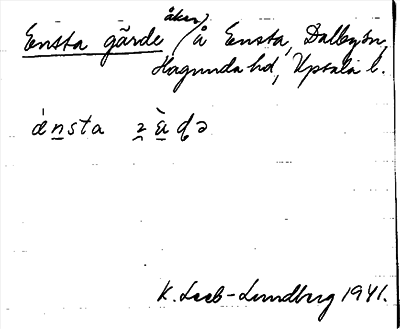 Ensta gärde (åker) å Ensta, Dalby sn,
Hagunda hd, Upsala l.
ánsta
K. Leeb-Lundberg 1941.